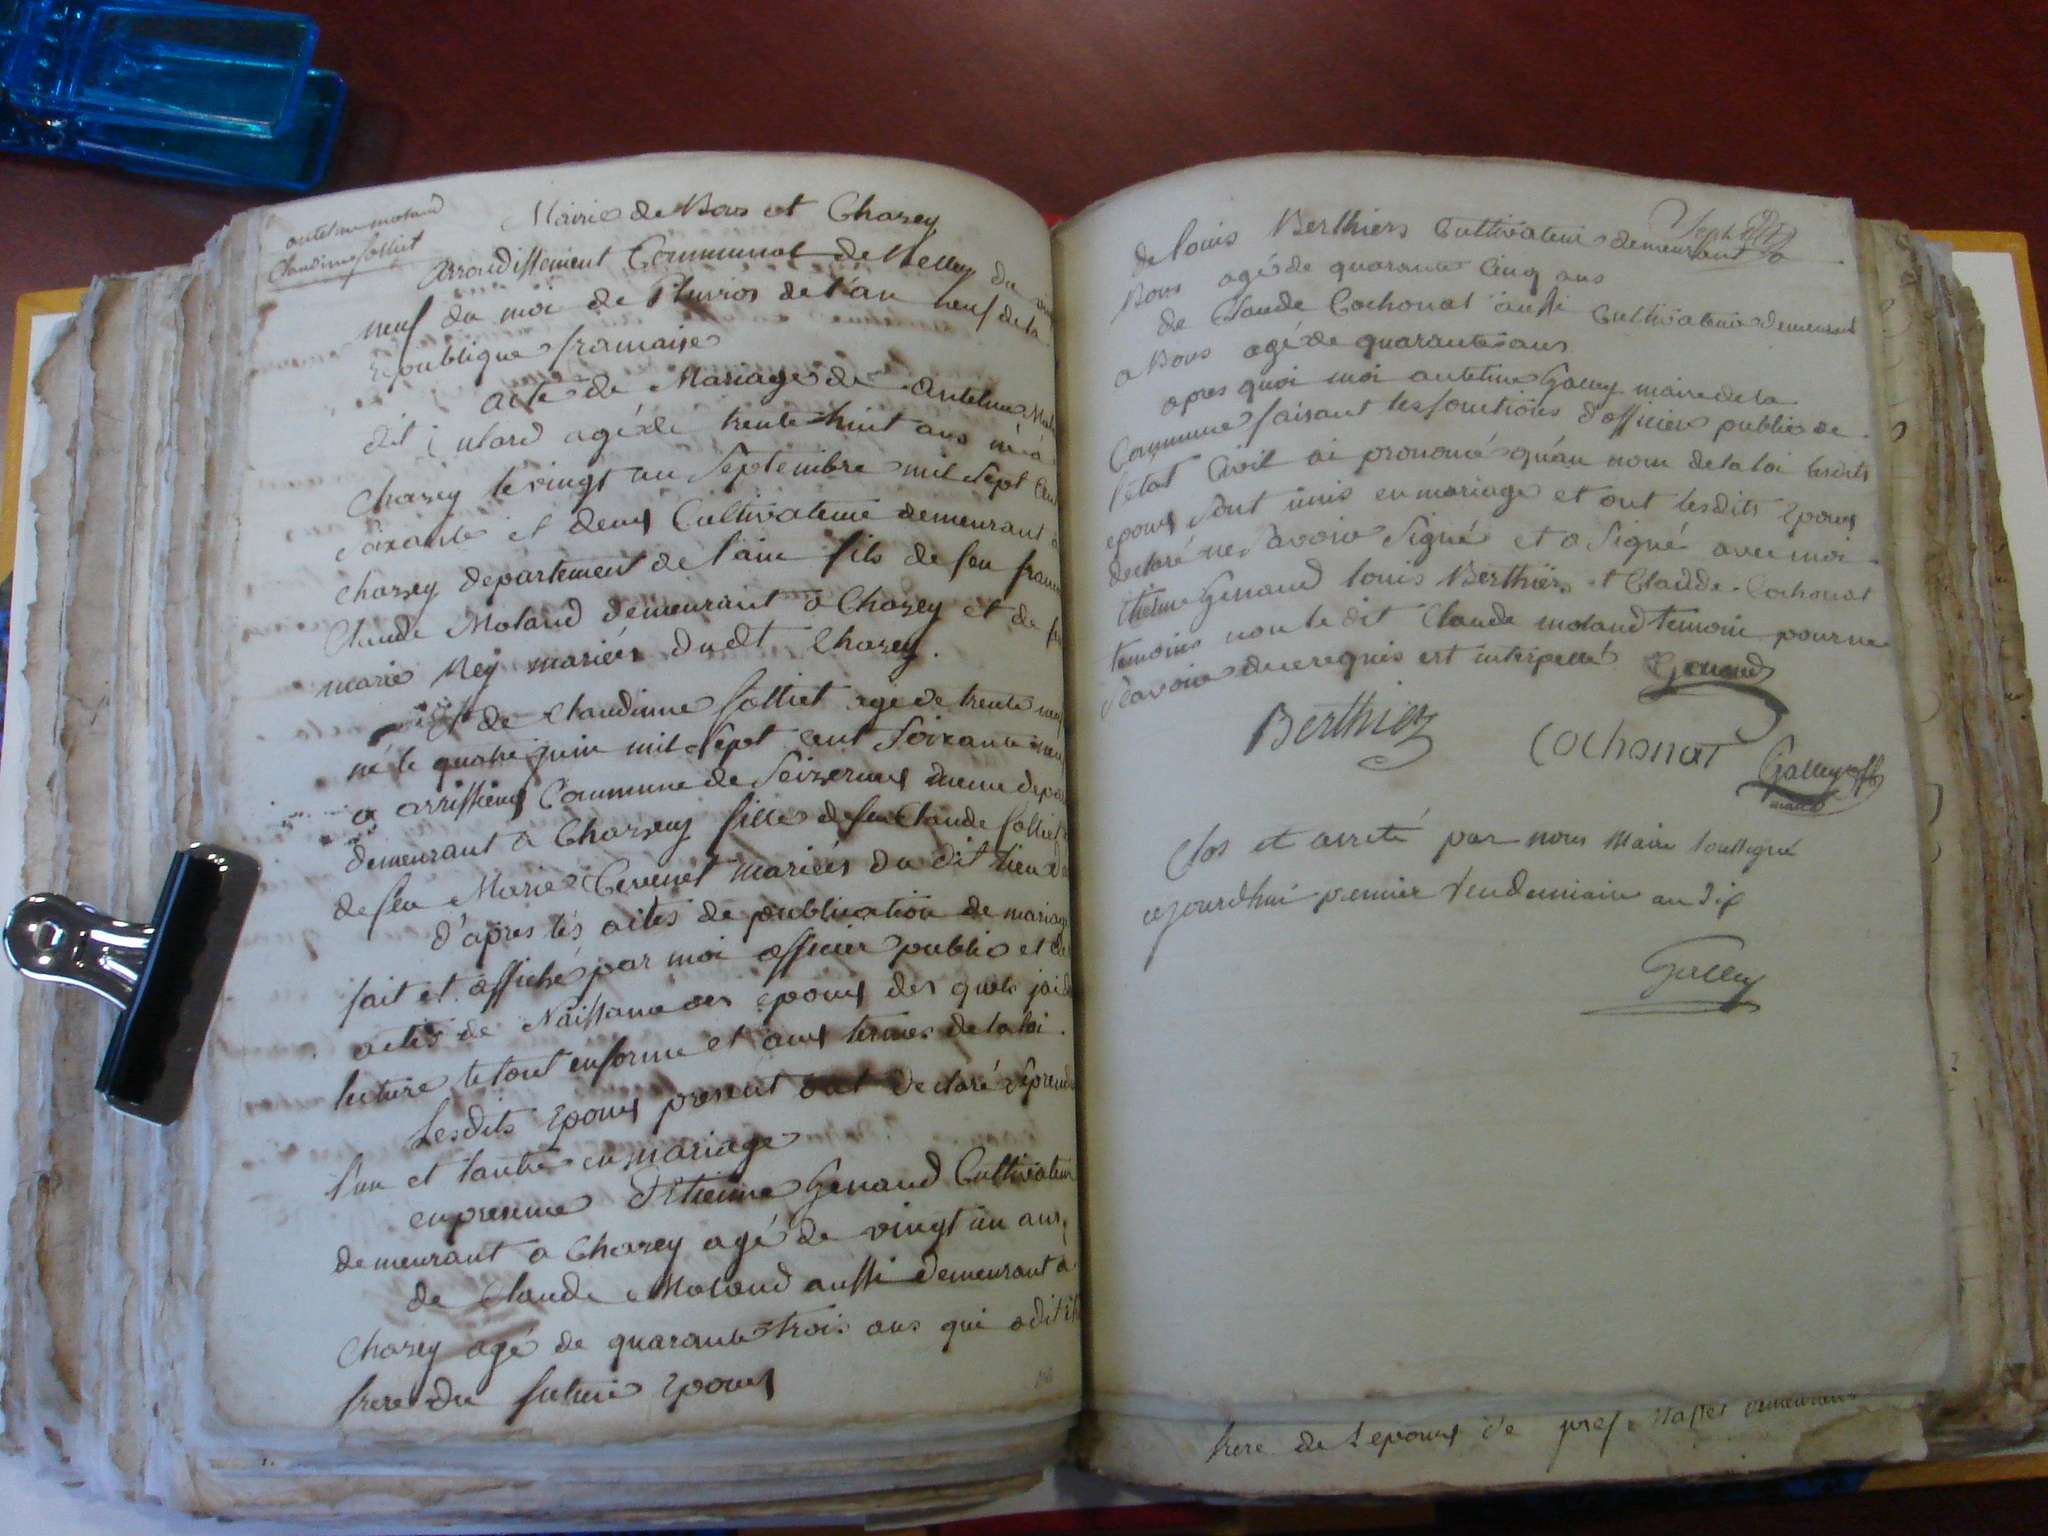 antelme moland
Claudine folliet
Mairie de Bons et Chazey
arrondissement Communal de Belley du
neuf du moi de Pluvios de l'an neuf de la
republique francaise
acte de Mariage de antelme
dit agé de trente huit ans né à
Chazey le vingt un Septembre mil Sept Cent
Soixante et deux Cultivateur demeurant à
Chazey departement de l'ain fils de feu
Claude Moland demeurant a Chazey et de
marie Rey mariés dudt Chazey.
Et de Claudinne folliet agé de trente neuf
né le quatre juin mil Sept cent Soixante
a Commune de meme
demeurant a Chazey fille de feu Claude folliet
de feu Marie mariés du dit lieu
d'apres les actes de publication de mariage
fait et affiché par moi officier public et
actes de Naissance des epoux des quels jai
lecture le tout en forme et aux termes de la loi.
Lesdits Epoux present ont declaré Se prendre
l'un et l'autre en mariage
en presence d'Etienne Genaud Cultivateur
demeurant a Chazey agé de vingt un ans,
de Claude Moland aussi demeurant a
Chazey agé de quarante trois ans qui a dit
frere du futur Epoux
de louis Berthiers Cultivateur demeurant a
Bons agé de quarante Cinq ans
de Claude Cochonat aussi Cultivateur demeurant
a Bons agé de quarante ans
apres quoi moi antelme Galley maire de la
Commune faisant les fonctions d'officier public de
l'état Civil ai prononcé qu'au nom de la loi lesdits
epoux Sont unis en mariage et ont lesdits Epoux
declaré ne Savoir Signé et a Signé avec moi
Etienne Genaud louis Berthiers et Claude Cochonat
temoins non le dit Claude moland temoin pour ne
Scavoir de ce requis est interpellé Genaud
Berthier Cochonat Galley
maire
Clos et arreté par nous Maire Soussigné
cejourdhui premier Vendemiaire an dix
Galley
frere de L'epoux de